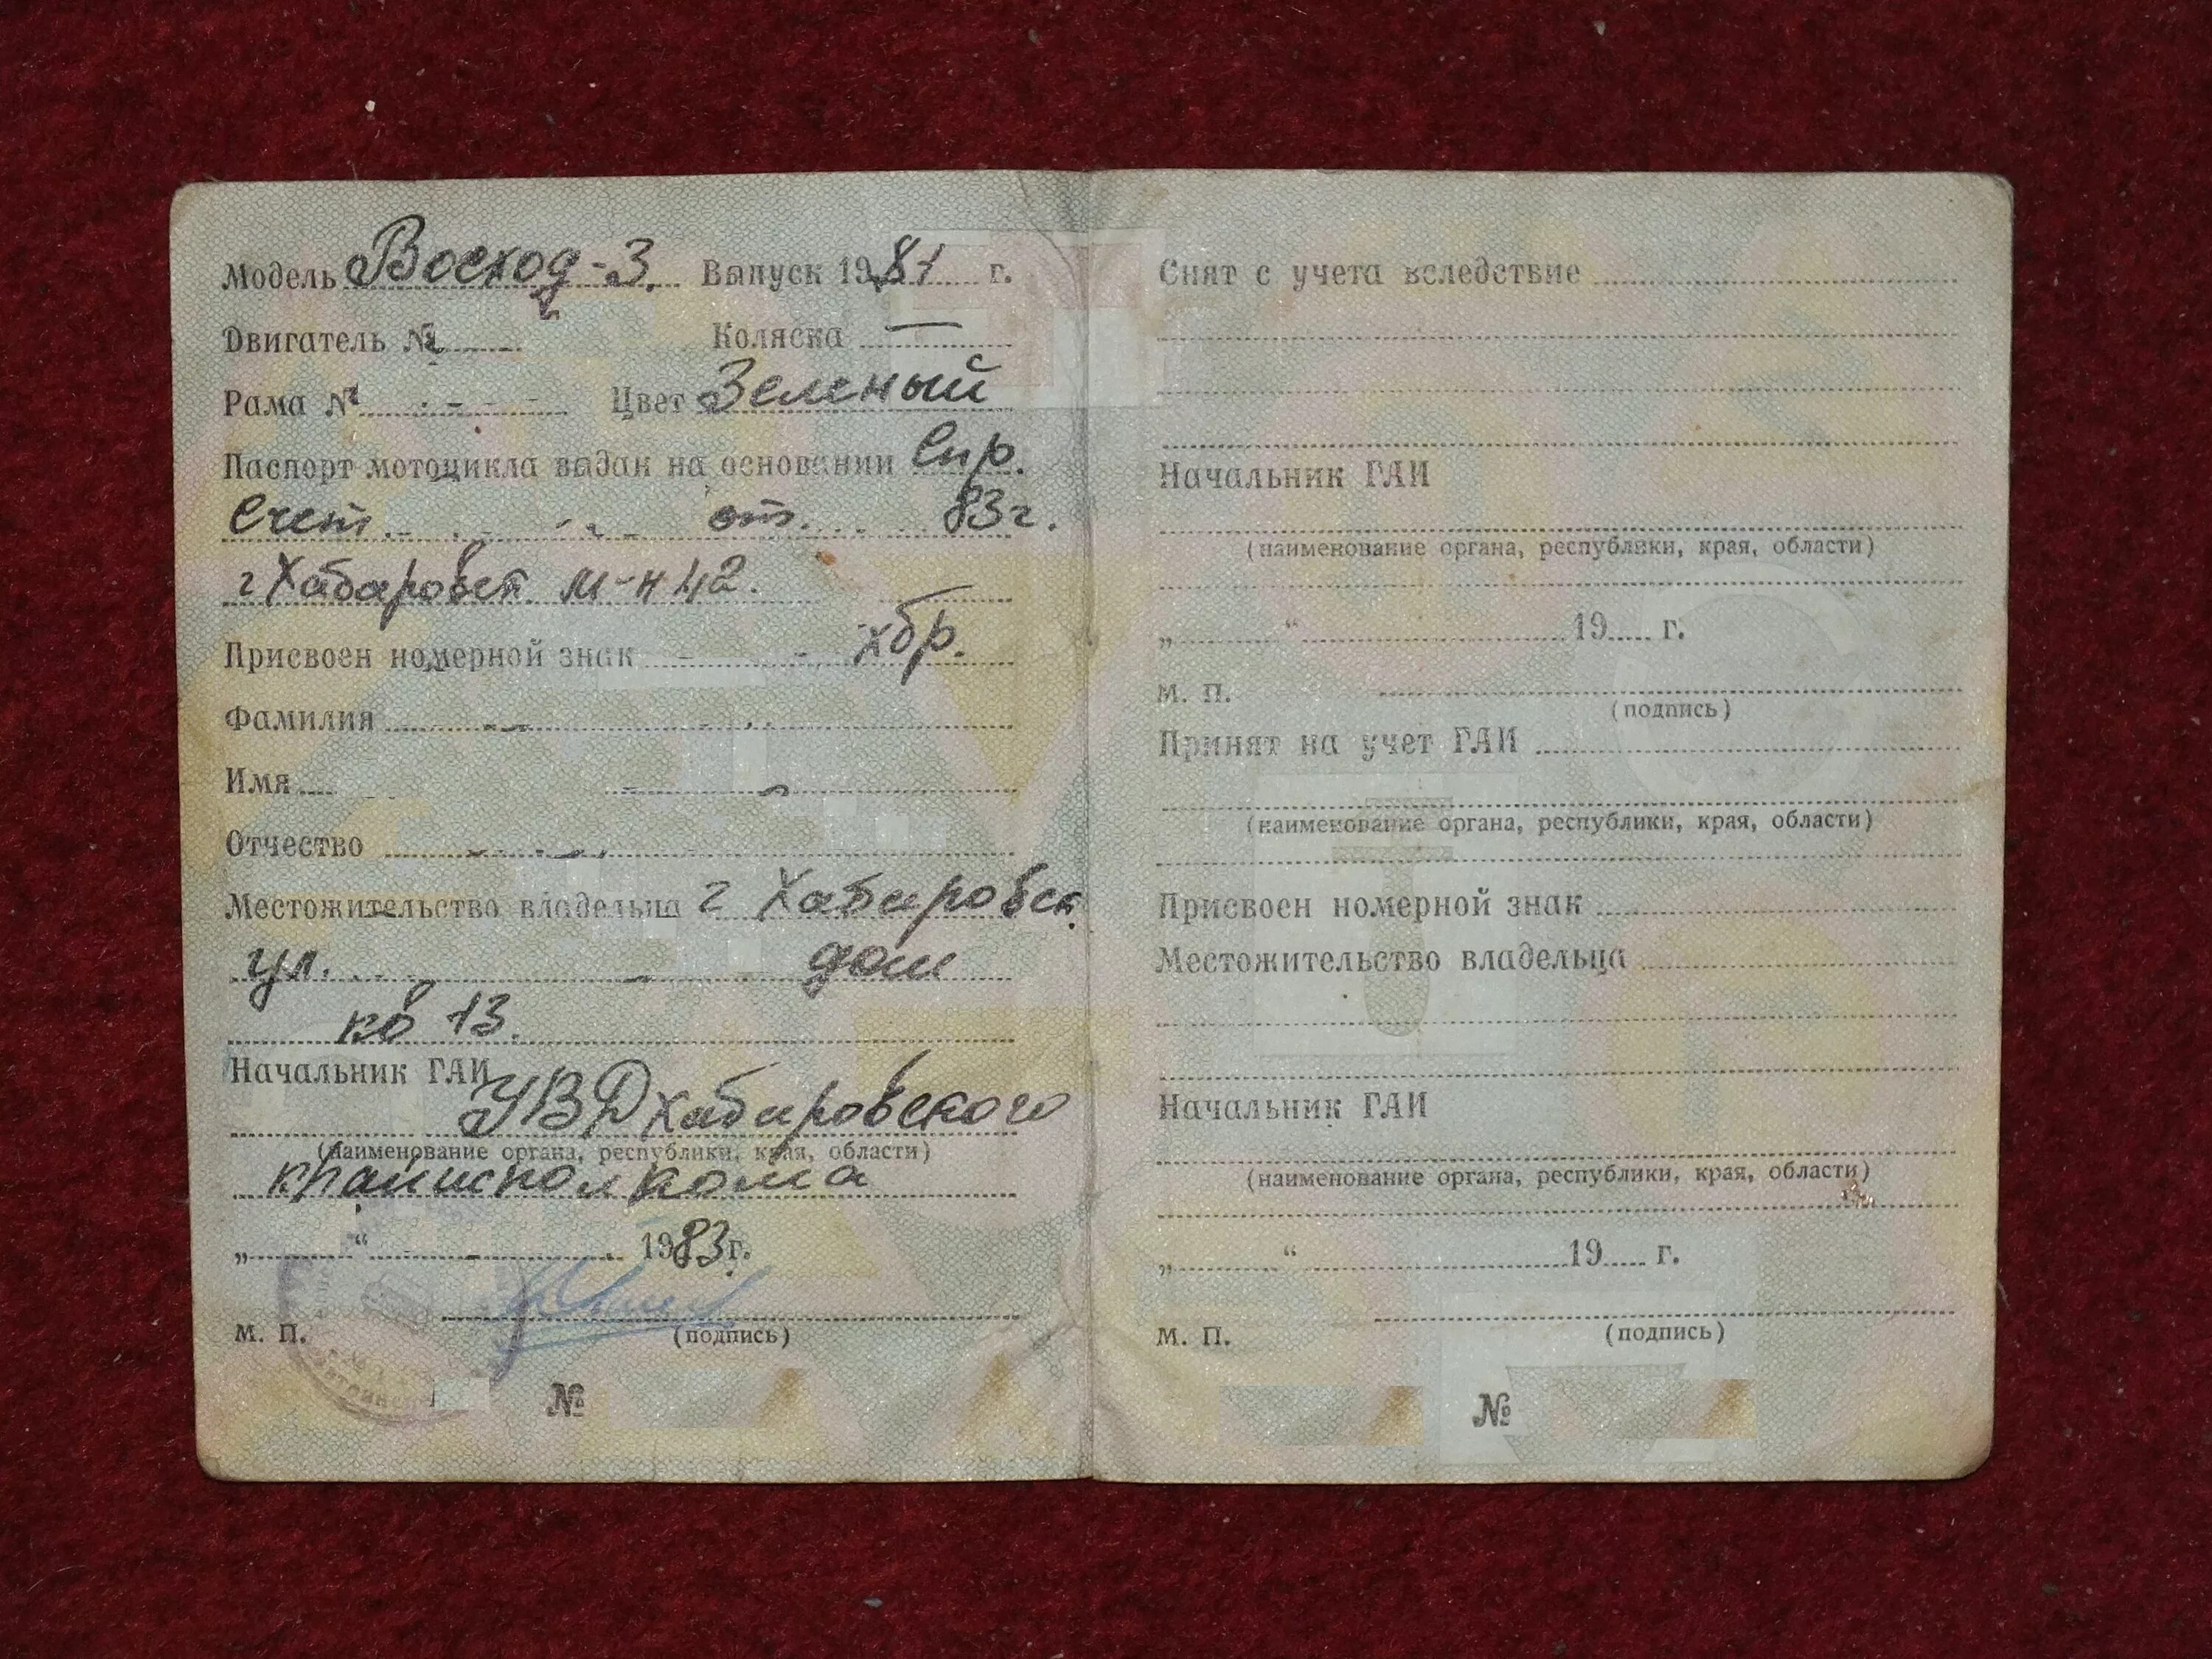 Модель Восход-3. Выпуск 1981 г.
Двигатель № Коляска —
Рама № Цвет Зеленый
Паспорт мотоцикла выдан на основании Спр.
Счет от. 83г.
г Хабаровск м-н 42.
Присвоен номерной знак хбр.
Фамилия
Имя
Отчество
Местожительство владельца г Хабаровск
ул. дом
кв 13.
Начальник ГАИ
УВД Хабаровского
(наименование органа, республики, края, области)
крайисполкома
„ “ 1983г.
М. П. (подпись)
№
Снят с учета вследствие
Начальник ГАИ
(наименование органа, республики, края, области)
„ “ 19 г.
М. П.
(подпись)
Принят на учет ГАИ
(наименование органа, республики, края, области)
Присвоен номерной знак
Местожительство владельца
Начальник ГАИ
(наименование органа, республики, края, области)
„ “ 19 г.
М. П. (подпись)
№